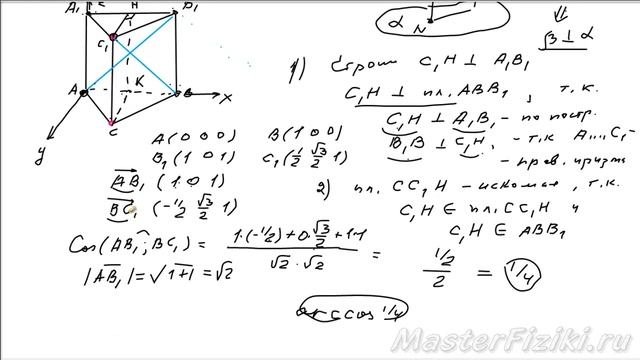 A₁ H B₁
C₁
A K B x
C
y
α N
⇓
β ⊥ α
1) Строим C₁H ⊥ A₁B₁
C₁H ⊥ пл. ABB₁, т.к.
C₁H ⊥ A₁B₁ - по постр.
B₁B ⊥ C₁H, - т.к A...C₁ -
- прав. призма
A(0 0 0) B(1 0 0)
B₁(1 0 1) C₁(1/2 √3/2 1)
AB₁ (1 0 1)
BC₁ (-1/2 √3/2 1)
2) пл. CC₁H - искомая, т.к.
C₁H ∈ пл. CC₁H и
C₁H ∈ ABB₁
Cos(AB₁; BC₁) = (1·(-1/2) + 0·√3/2 + 1·1)/(√2·√2) = (1/2)/2 = 1/4
|AB₁| = √(1+1) = √2
arccos 1/4
MasterFiziki.ru